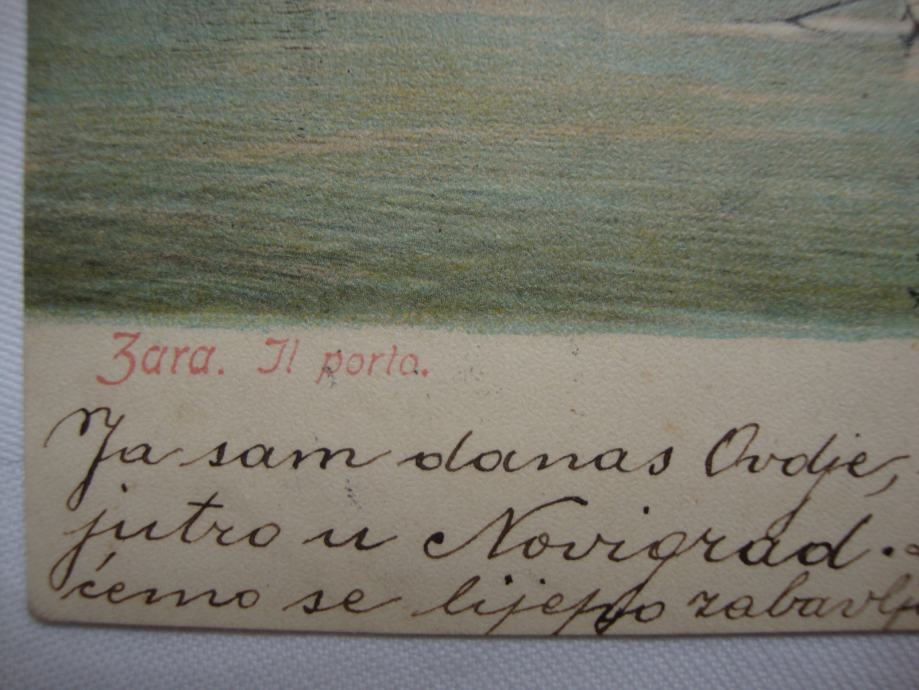 Zara. Il porto.
Ja sam danas Ovdje,
jutro u Novigrad.
ćemo se lijepo